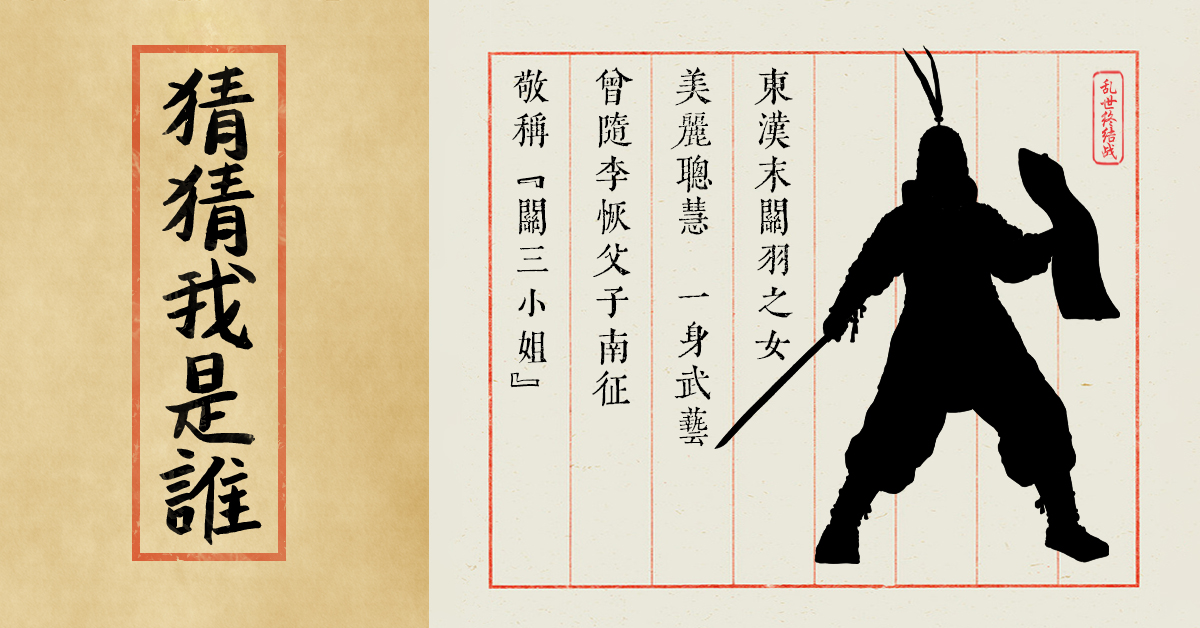 猜猜我是誰
乱世终结战
東漢末關羽之女
美麗聰慧　一身武藝
曾隨李恢父子南征
敬稱『關三小姐』